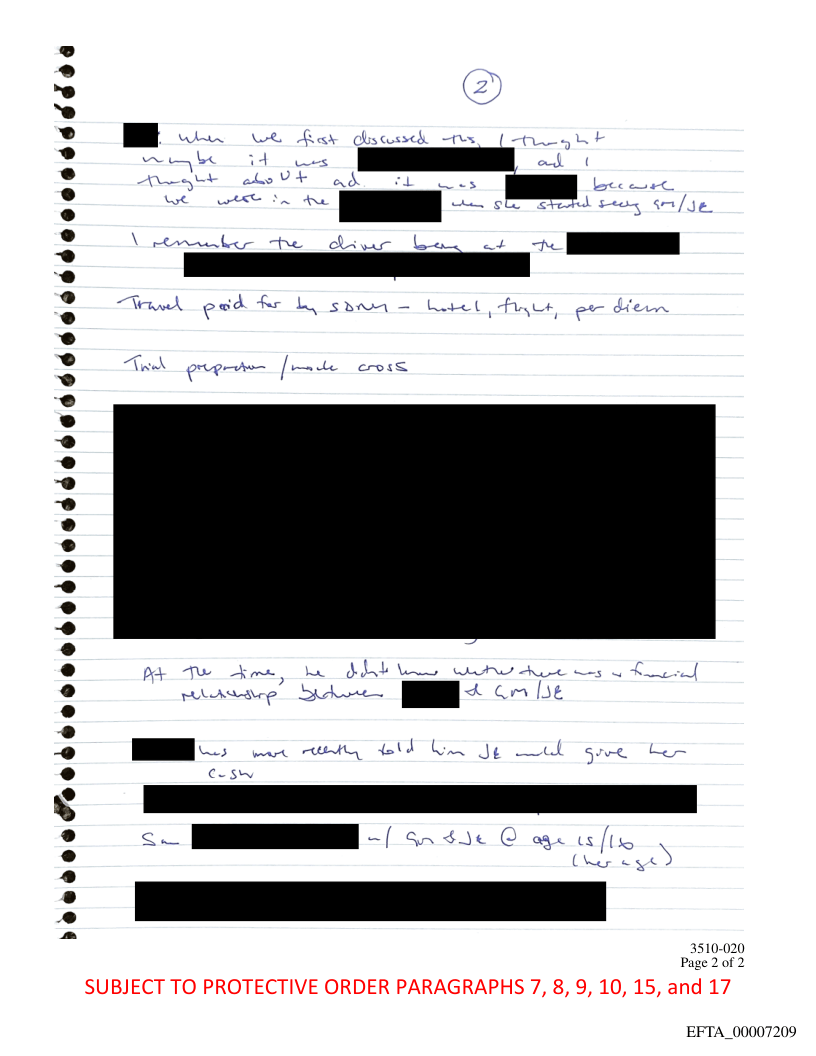 2
: when we first discussed this, I thought
maybe it was , and I
thought about ad it was because
we were in the when she started seeing GM/JE
I remember the driver being at the
Travel paid for by SDNY – hotel, flight, per diem
Trial preparation / mock cross
At the time, he didn't know whether there was a financial
relationship between & GM/JE
has more recently told him JE would give her
cash
Saw w/ GM & JE @ age 15/16
(her age)
3510-020
Page 2 of 2
SUBJECT TO PROTECTIVE ORDER PARAGRAPHS 7, 8, 9, 10, 15, and 17
EFTA_00007209